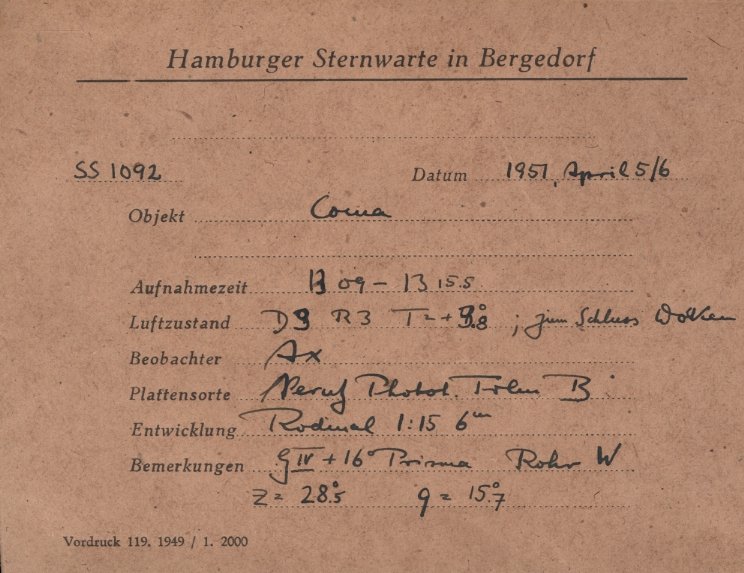 Hamburger Sternwarte in Bergedorf
SS 1092 Datum 1951, April 5/6
Objekt Coma
Aufnahmezeit 13 09 – 13 15.5
Luftzustand D3 R3 T = +9°.8 ; zum Schluss Wolken
Beobachter Ax
Plattensorte Perutz Photot. Film B
Entwicklung Rodinal 1:15 6ᵐ
Bemerkungen IV + 16° Prisma Rohr W
z = 28°.5 q = 15°.7
Vordruck 119. 1949 / 1. 2000